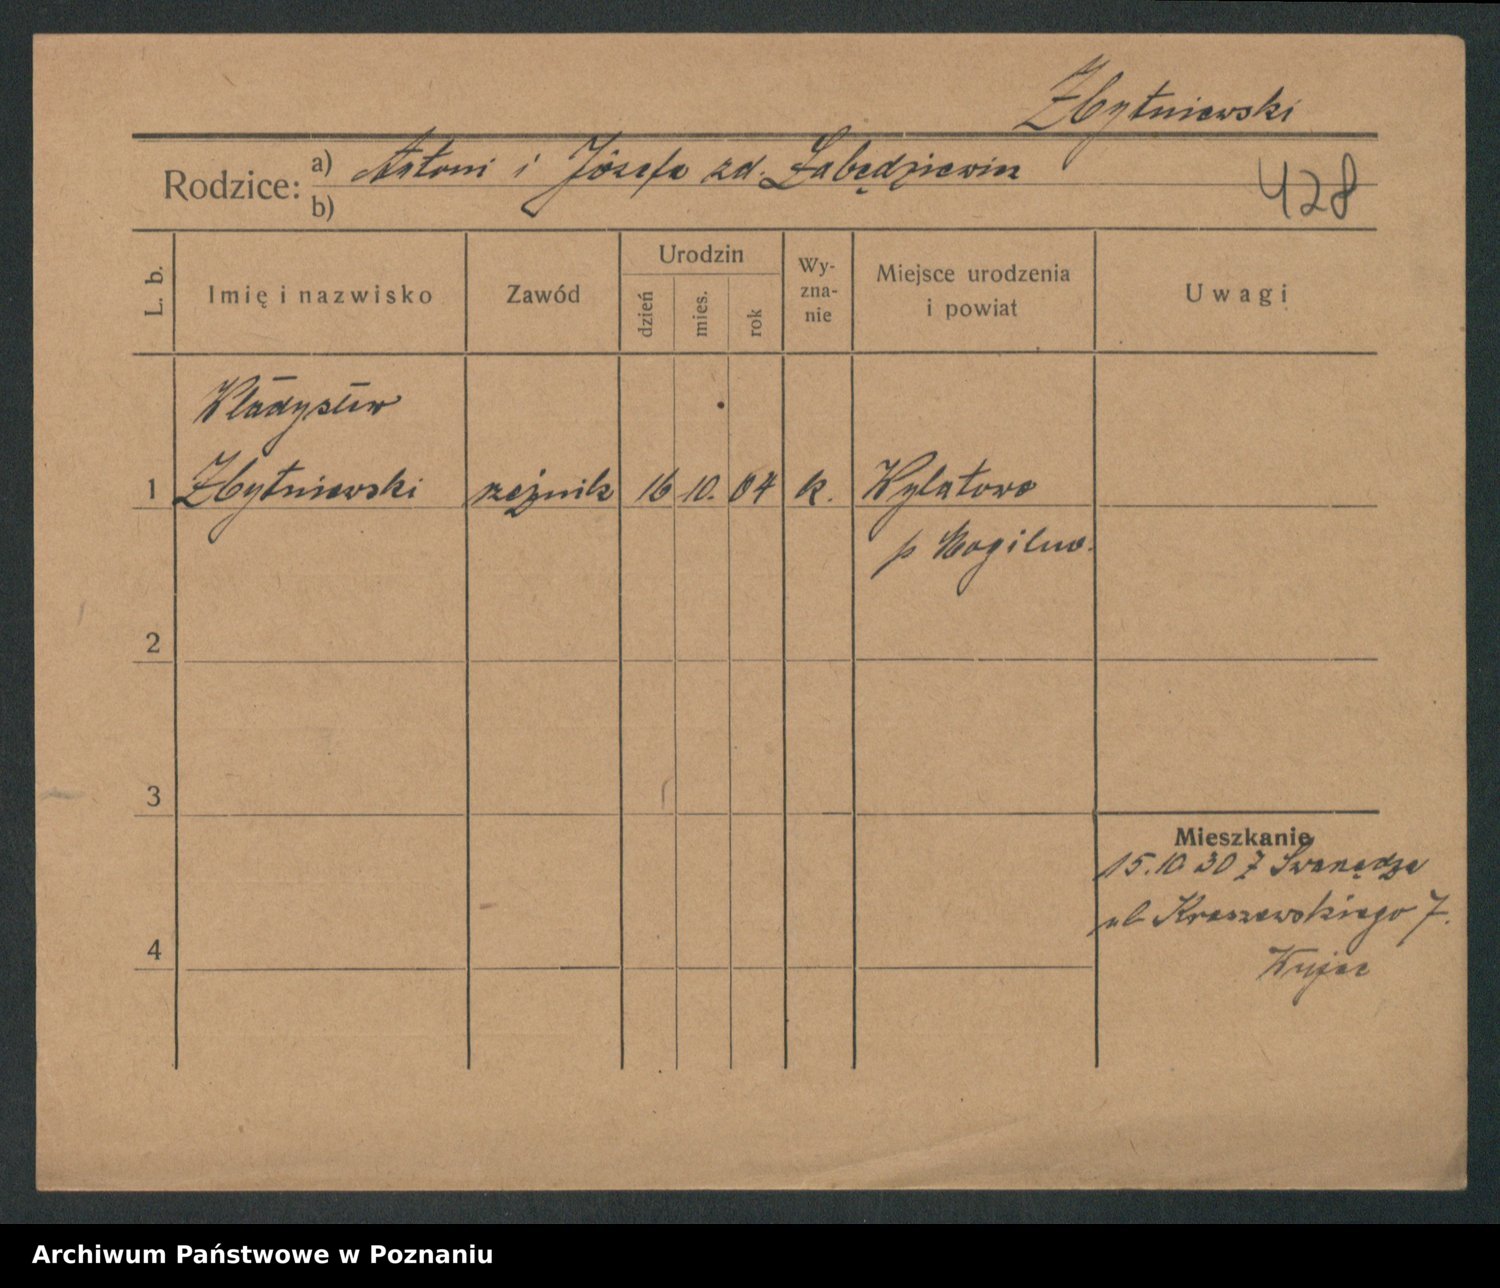 Zbytniewski
Rodzice: a) Antoni i Józefa zd. Łabędziewicz
b)
428
L. b.
Imię i nazwisko
Zawód
Urodzin
dzień
mies.
rok
Wy-
zna-
nie
Miejsce urodzenia
i powiat
Uwagi
Władysław
1 Zbytniewski rzeźnik 16 10. 04 k. Wylatowo
p Mogilno.
2
3
4
Mieszkanie
15.10 30 z Swarzędza
ul Kraszewskiego 7.
Archiwum Państwowe w Poznaniu